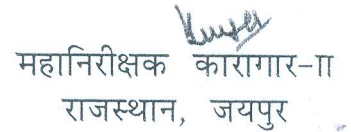 महानिरीक्षक कारागार-ाा
राजस्थान, जयपुर